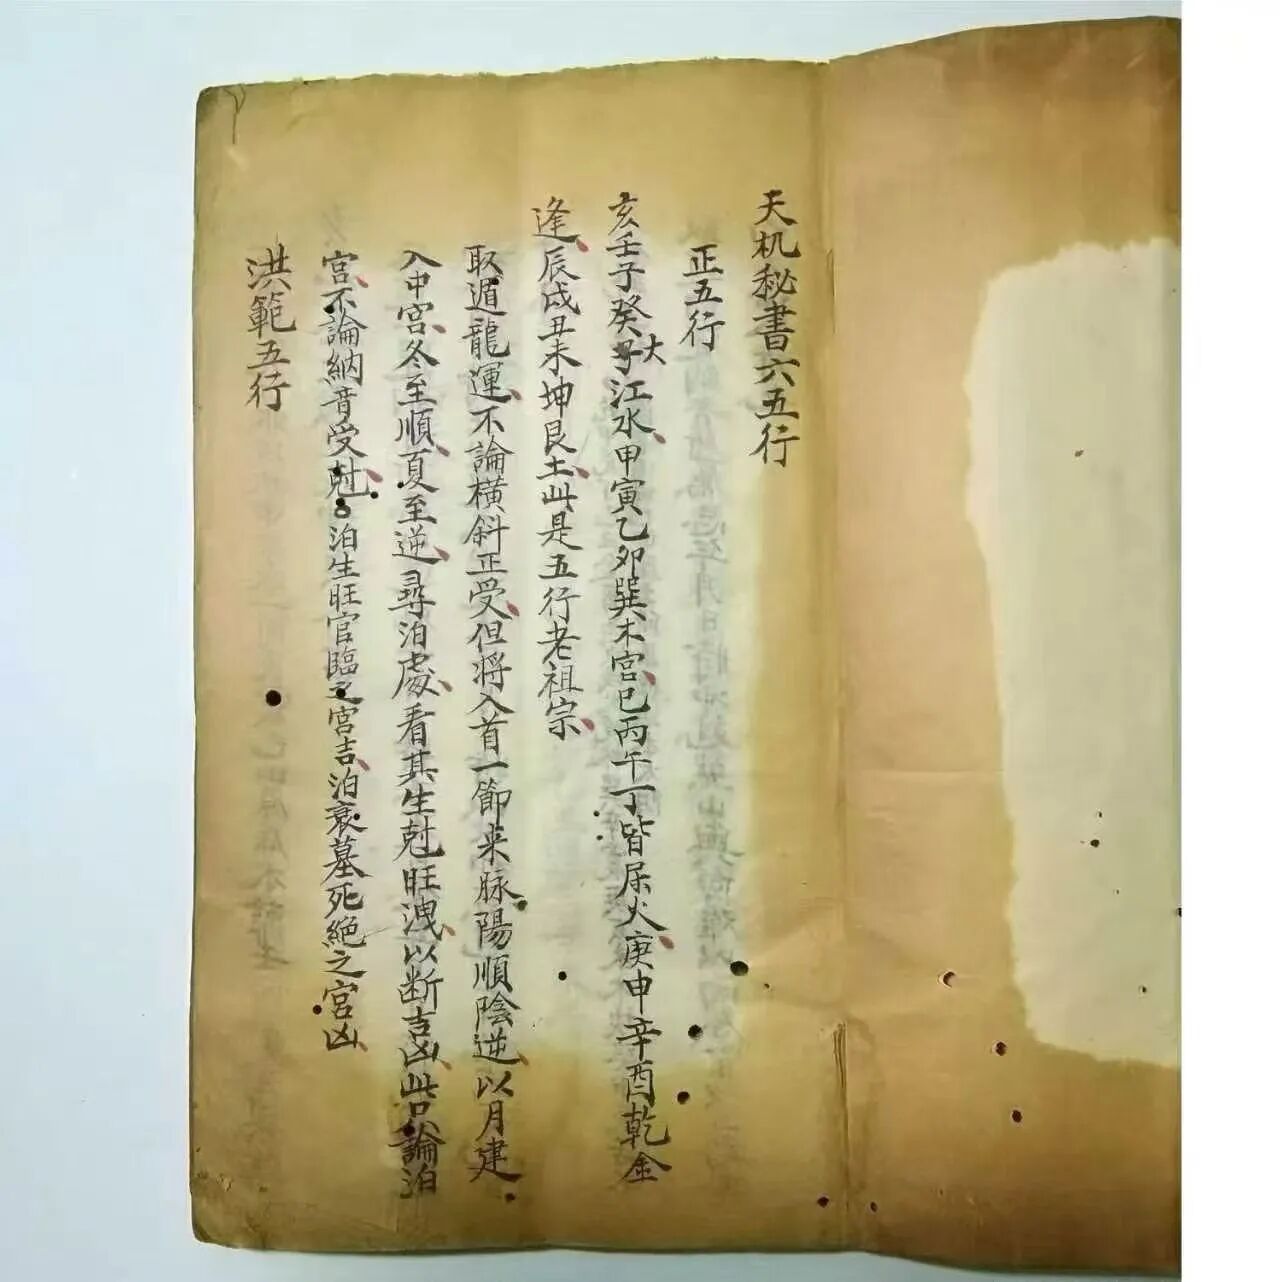 天机秘書六五行
正五行
亥壬子癸大江水甲寅乙卯巽木宮巳丙午丁皆属火庚申辛酉乾金
逢辰戌丑未坤艮土此是五行老祖宗
取遁龍運不論横斜正受但将入首一節来脉陽順陰逆以月建
入中宮冬至順夏至逆尋泊處看其生尅旺洩以断吉凶此只論泊
宮不論納音受尅泊生旺官臨之宮吉泊衰墓死絶之宮凶
洪範五行